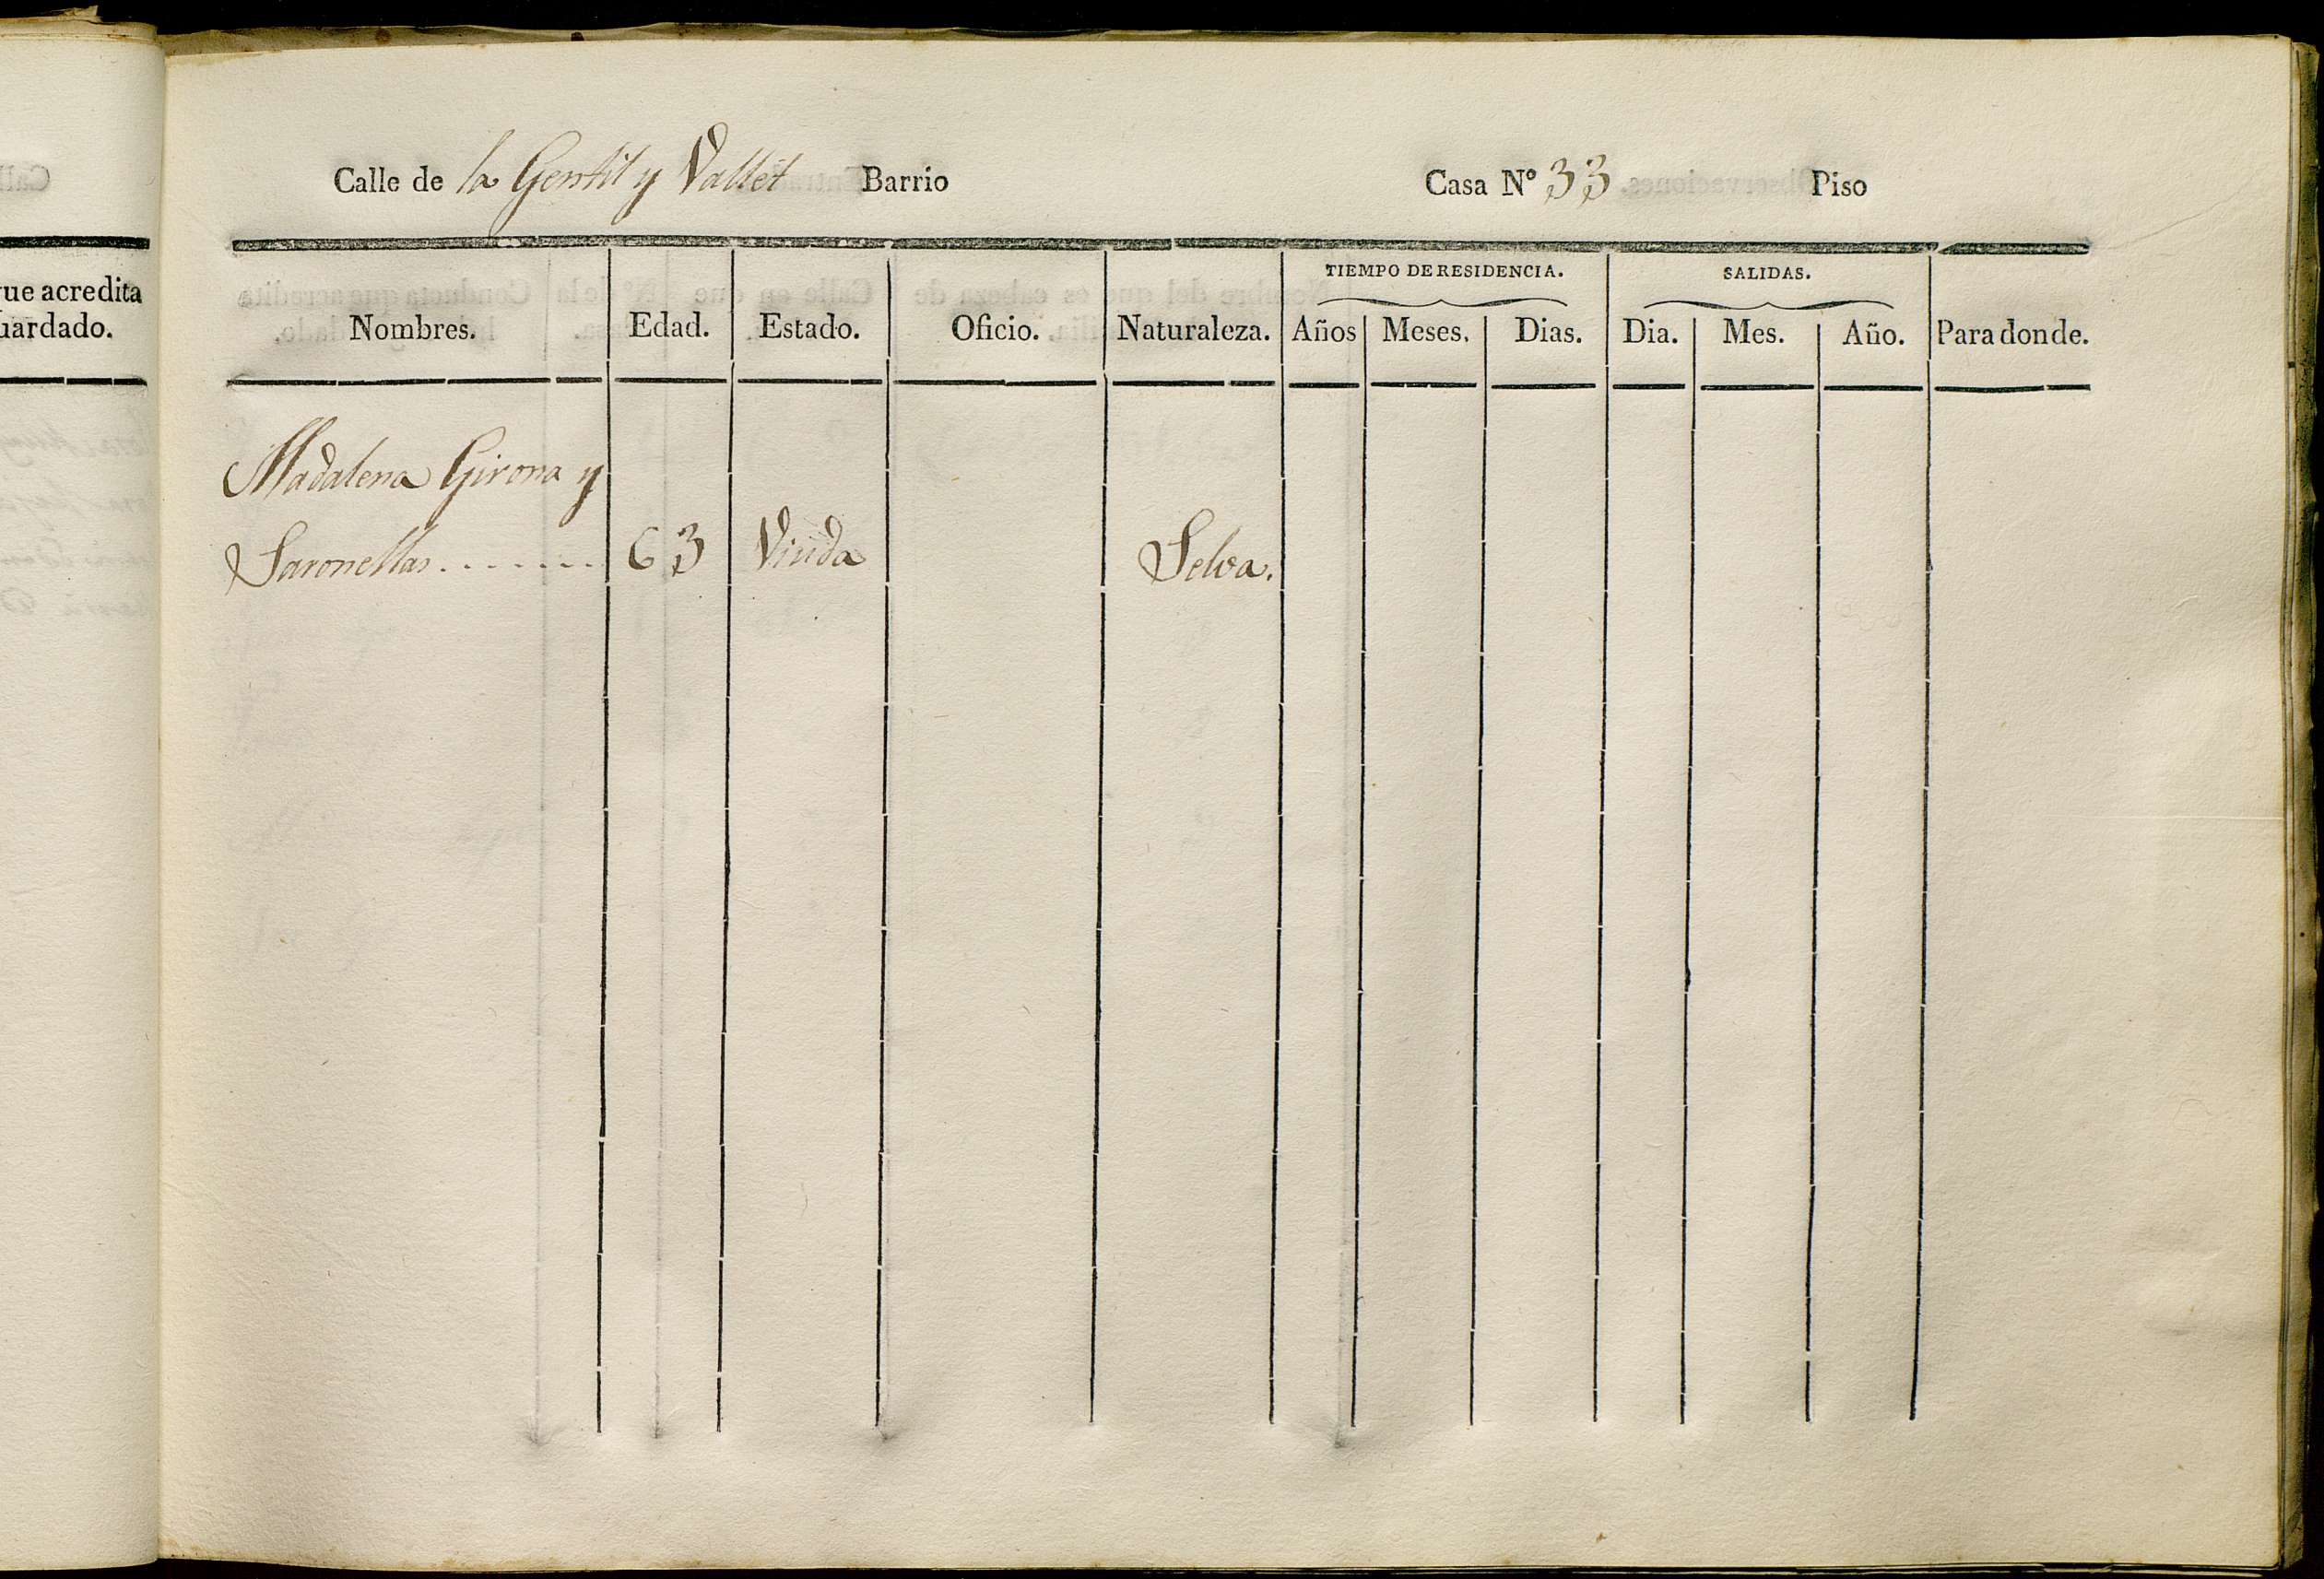 Calle de la Gentil y Vallet Barrio Casa Nº 33 Piso
ue acredita
uardado.
TIEMPO DE RESIDENCIA. SALIDAS.
Nombres. Edad. Estado. Oficio. Naturaleza. Años Meses. Dias. Dia. Mes. Año. Para donde.
Madalena Girona y
Saronellas........ 63 Viuda Selva.